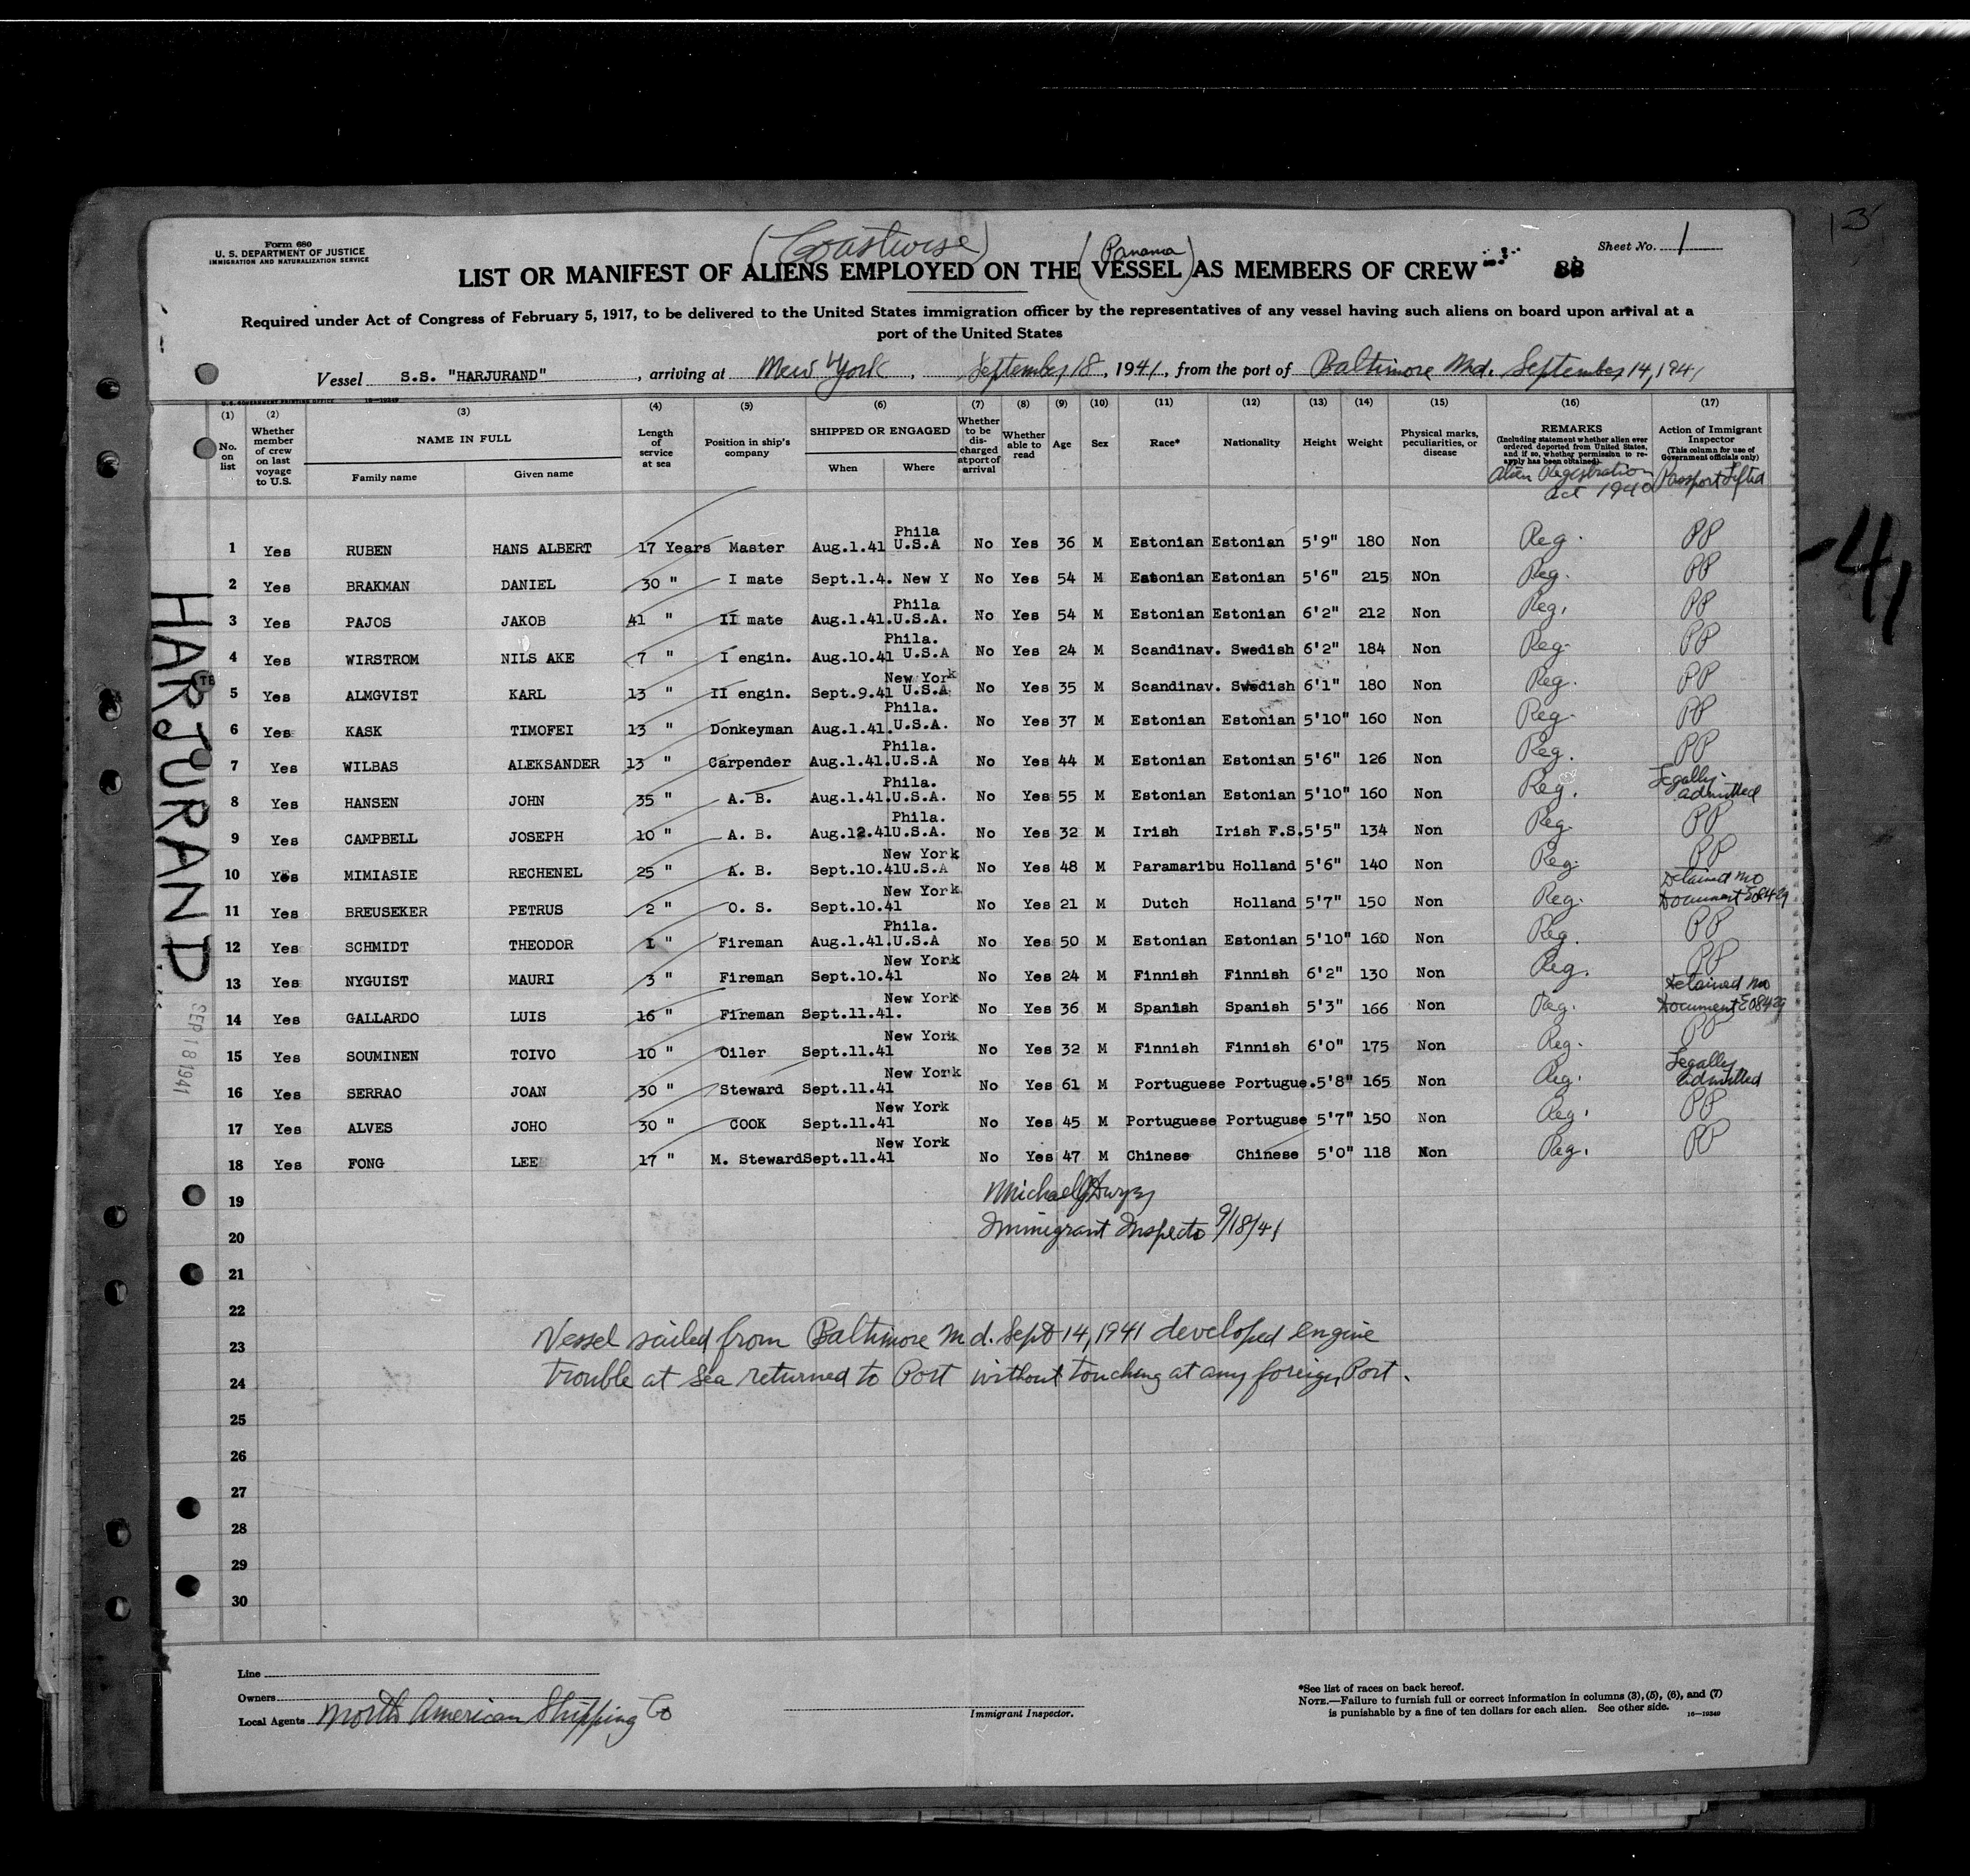 13
Form 680
U. S. DEPARTMENT OF JUSTICE
IMMIGRATION AND NATURALIZATION SERVICE
(Coastwise)
(Panama)
Sheet No. 1
LIST OR MANIFEST OF ALIENS EMPLOYED ON THE VESSEL AS MEMBERS OF CREW
Required under Act of Congress of February 5, 1917, to be delivered to the United States immigration officer by the representatives of any vessel having such aliens on board upon arrival at a
port of the United States
Vessel S.S. "HARJURAND", arriving at New York, September 18, 1941, from the port of Baltimore Md. September 14, 1941
U.S. GOVERNMENT PRINTING OFFICE 16-19249
(1) (2) (3) (4) (5) (6) (7) (8) (9) (10) (11) (12) (13) (14) (15) (16) (17)
No. on list
Whether member of crew on last voyage to U.S.
NAME IN FULL
Family name Given name
Length of service at sea
Position in ship's company
SHIPPED OR ENGAGED
When Where
Whether to be discharged at port of arrival
Whether able to read
Age Sex Race* Nationality Height Weight
Physical marks, peculiarities, or disease
REMARKS
(Including statement whether alien ever ordered deported from United States, and if so, whether permission to reapply has been obtained)
Alien Registration Act 1940
Action of Immigrant Inspector
(This column for use of Government officials only)
Passport Lifted
1 Yes RUBEN HANS ALBERT 17 Years Master Aug.1.41 Phila U.S.A No Yes 36 M Estonian Estonian 5'9" 180 Non Reg. PP
2 Yes BRAKMAN DANIEL 30 " I mate Sept.1.4. New Y No Yes 54 M Estonian Estonian 5'6" 215 NOn Reg. PP
3 Yes PAJOS JAKOB 41 " II mate Aug.1.41. Phila U.S.A. No Yes 54 M Estonian Estonian 6'2" 212 Non Reg. PP
4 Yes WIRSTROM NILS AKE 7 " I engin. Aug.10.41 Phila. U.S.A No Yes 24 M Scandinav. Swedish 6'2" 184 Non Reg. PP
5 Yes ALMGVIST KARL 13 " II engin. Sept.9.41 New York U.S.A No Yes 35 M Scandinav. Swedish 6'1" 180 Non Reg. PP
6 Yes KASK TIMOFEI 13 " Donkeyman Aug.1.41. Phila. U.S.A. No Yes 37 M Estonian Estonian 5'10" 160 Non Reg. PP
7 Yes WILBAS ALEKSANDER 13 " Carpender Aug.1.41. Phila. U.S.A No Yes 44 M Estonian Estonian 5'6" 126 Non Reg. PP
8 Yes HANSEN JOHN 35 " A. B. Aug.1.41. Phila. U.S.A. No Yes 55 M Estonian Estonian 5'10" 160 Non Reg. Legally admitted
9 Yes CAMPBELL JOSEPH 10 " A. B. Aug.12.41 Phila. U.S.A. No Yes 32 M Irish Irish F.S. 5'5" 134 Non Reg. PP
10 Yes MIMIASIE RECHENEL 25 " A. B. Sept.10.41 New York U.S.A No Yes 48 M Paramaribu Holland 5'6" 140 Non Reg. PP
11 Yes BREUSEKER PETRUS 2 " O. S. Sept.10.41 New York No Yes 21 M Dutch Holland 5'7" 150 Non Reg. Detained no Document E08429
12 Yes SCHMIDT THEODOR 1 " Fireman Aug.1.41. Phila. U.S.A No Yes 50 M Estonian Estonian 5'10" 160 Non Reg. PP
13 Yes NYGUIST MAURI 3 " Fireman Sept.10.41 New York No Yes 24 M Finnish Finnish 6'2" 130 Non Reg. PP
14 Yes GALLARDO LUIS 16 " Fireman Sept.11.41. New York No Yes 36 M Spanish Spanish 5'3" 166 Non Reg. Detained no Document E08429
15 Yes SOUMINEN TOIVO 10 " Oiler Sept.11.41 New York No Yes 32 M Finnish Finnish 6'0" 175 Non Reg. PP
16 Yes SERRAO JOAN 30 " Steward Sept.11.41 New York No Yes 61 M Portuguese Portugue. 5'8" 165 Non Reg. Legally admitted
17 Yes ALVES JOHO 30 " COOK Sept.11.41 New York No Yes 45 M Portuguese Portuguse 5'7" 150 Non Reg. PP
18 Yes FONG LEE 17 " M. Steward Sept.11.41 New York No Yes 47 M Chinese Chinese 5'0" 118 Non Reg. PP
19
20 Immigrant Inspector 9/18/41
21
22
23 Vessel sailed from Baltimore Md. Sept 14, 1941 developed engine
24 trouble at sea returned to Port without touching at any foreign Port.
25
26
27
28
29
30
HARJURAND
SEP 18 1941
-41
Line
Owners
Local Agents North American Shipping Co
Immigrant Inspector.
*See list of races on back hereof.
NOTE.—Failure to furnish full or correct information in columns (3), (5), (6), and (7)
is punishable by a fine of ten dollars for each alien. See other side. 16-19249